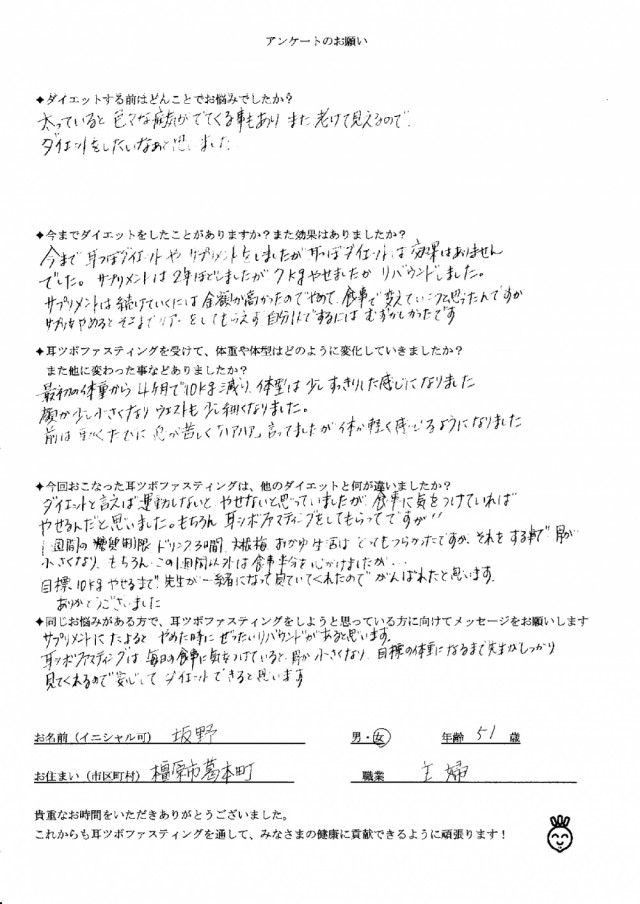 アンケートのお願い
✦ダイエットする前はどんなことでお悩みでしたか？
太っていると色々な病気がでてくる事もあり また 老けて見えるので
ダイエットをしたいなぁと思いました
✦今までダイエットをしたことがありますか？また効果はありましたか？
今まで耳つぼダイエットや サプリメントをしましたが耳つぼダイエットは 効果はありません
でした。サプリメントは2年ほどしましたが7kgやせましたが リバウンドしました。
サプリメントは続けていくには 金額が高かったのでやめて、食事で変えていこうと思ったんですが
サプリをやめるとそこまで をしてもらえず 自分1人でするには むずかしかったです
✦耳ツボファスティングを受けて、体重や体型はどのように変化していきましたか？
また他に変わった事などありましたか？
最初の体重から4ヶ月で10kg減り、体型は少しすっきりした感じになりました
顔が少し小さくなり ウエストも少し細くなりました。
前は動くたびに 息が苦しく「ハアハア」言ってましたが 体が軽く感じるようになりました
✦今回おこなった耳ツボファスティングは、他のダイエットと何が違いましたか？
ダイエットと言えば運動しないと やせないと思っていましたが 食事に気をつけていれば
やせるんだと思いました。もちろん 耳ツボファスティングをしてもらってですが!!
1週間の糖質制限 ドリンク3日間、大根梅 おかゆ生活は とてもつらかったですが、それをする事で 胃が
小さくなり、もちろん この1週間以外は 食事を心がけましたが…
目標10kgやせるまで 先生が一緒になって見ていてくれたので がんばれたと思います。
ありがとうございました
✦同じお悩みがある方で、耳ツボファスティングをしようと思っている方に向けてメッセージをお願いします
サプリメントにたよると やめた時に ぜったいリバウンドがあると思います。
耳ツボファスティングは 毎日の食事に気をつけていると、胃が小さくなり、目標の体重になるまで 先生がしっかり
見てくれるので 安心して ダイエットできると思います
お名前（イニシャル可） 坂野 男・女 年齢 51 歳
お住まい（市区町村） 橿原市葛本町 職業 主婦
貴重なお時間をいただきありがとうございました。
これからも耳ツボファスティングを通して、みなさまの健康に貢献できるように頑張ります！